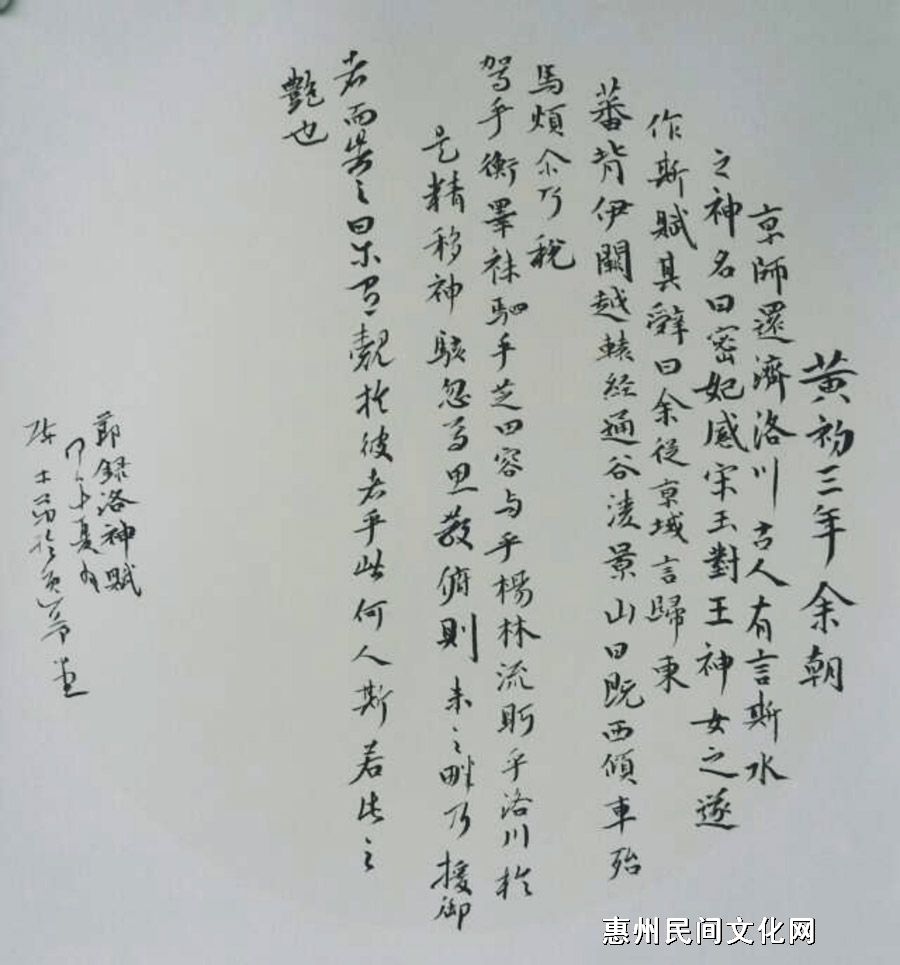 黄初三年余朝
京師還濟洛川古人有言斯水
之神名曰密妃感宋玉對王神女之遂
作斯賦其辭曰余從京域言歸東
蕃背伊闕越轅经通谷淩景山日既西傾車殆
馬煩尒乃稅
驾乎衡睪袜駟乎芝田容与乎楊林流眄乎洛川於
是精移神駭忽焉思散俯則未之畔乃援御
者而告之曰尔有覿於彼者乎此何人斯若此之
艷也
節録洛神賦
夏
士於堂
惠州民间文化网